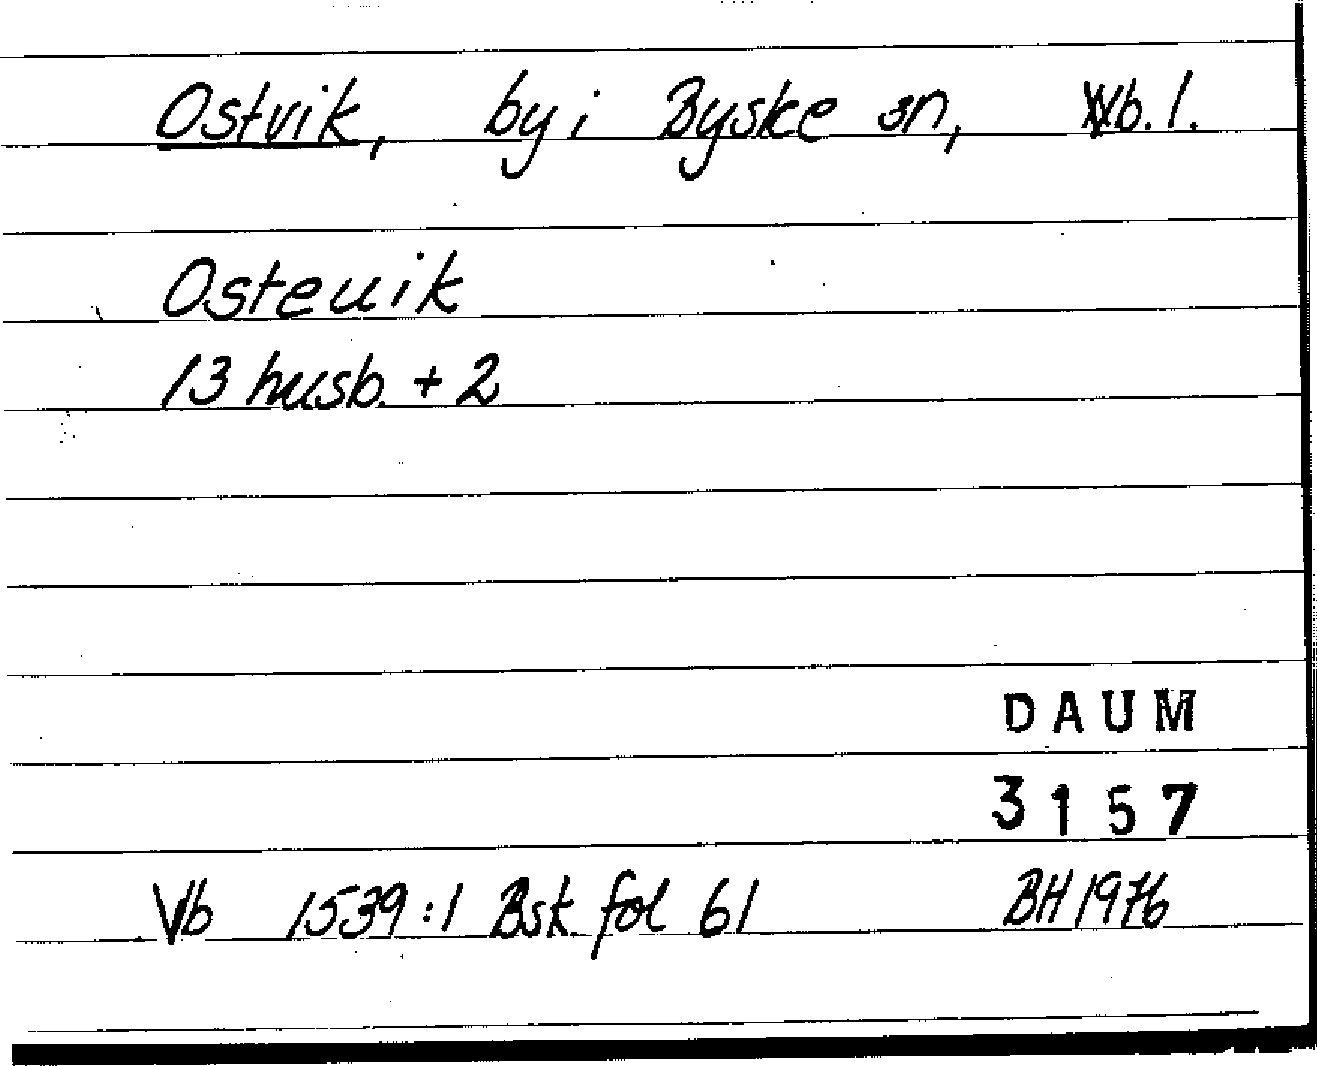 Ostvik, by i Byske sn, Vb. l.
Osteuik
13 husb. + 2
DAUM
3157
Vb 1539:1 Bsk. fol 61 BH 1976